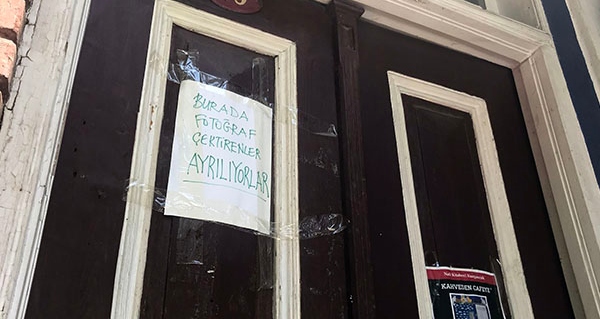 BURADA
FOTOĞRAF
ÇEKTİRENLER
AYRILIYORLAR
KAHVEDEN CAFEYE